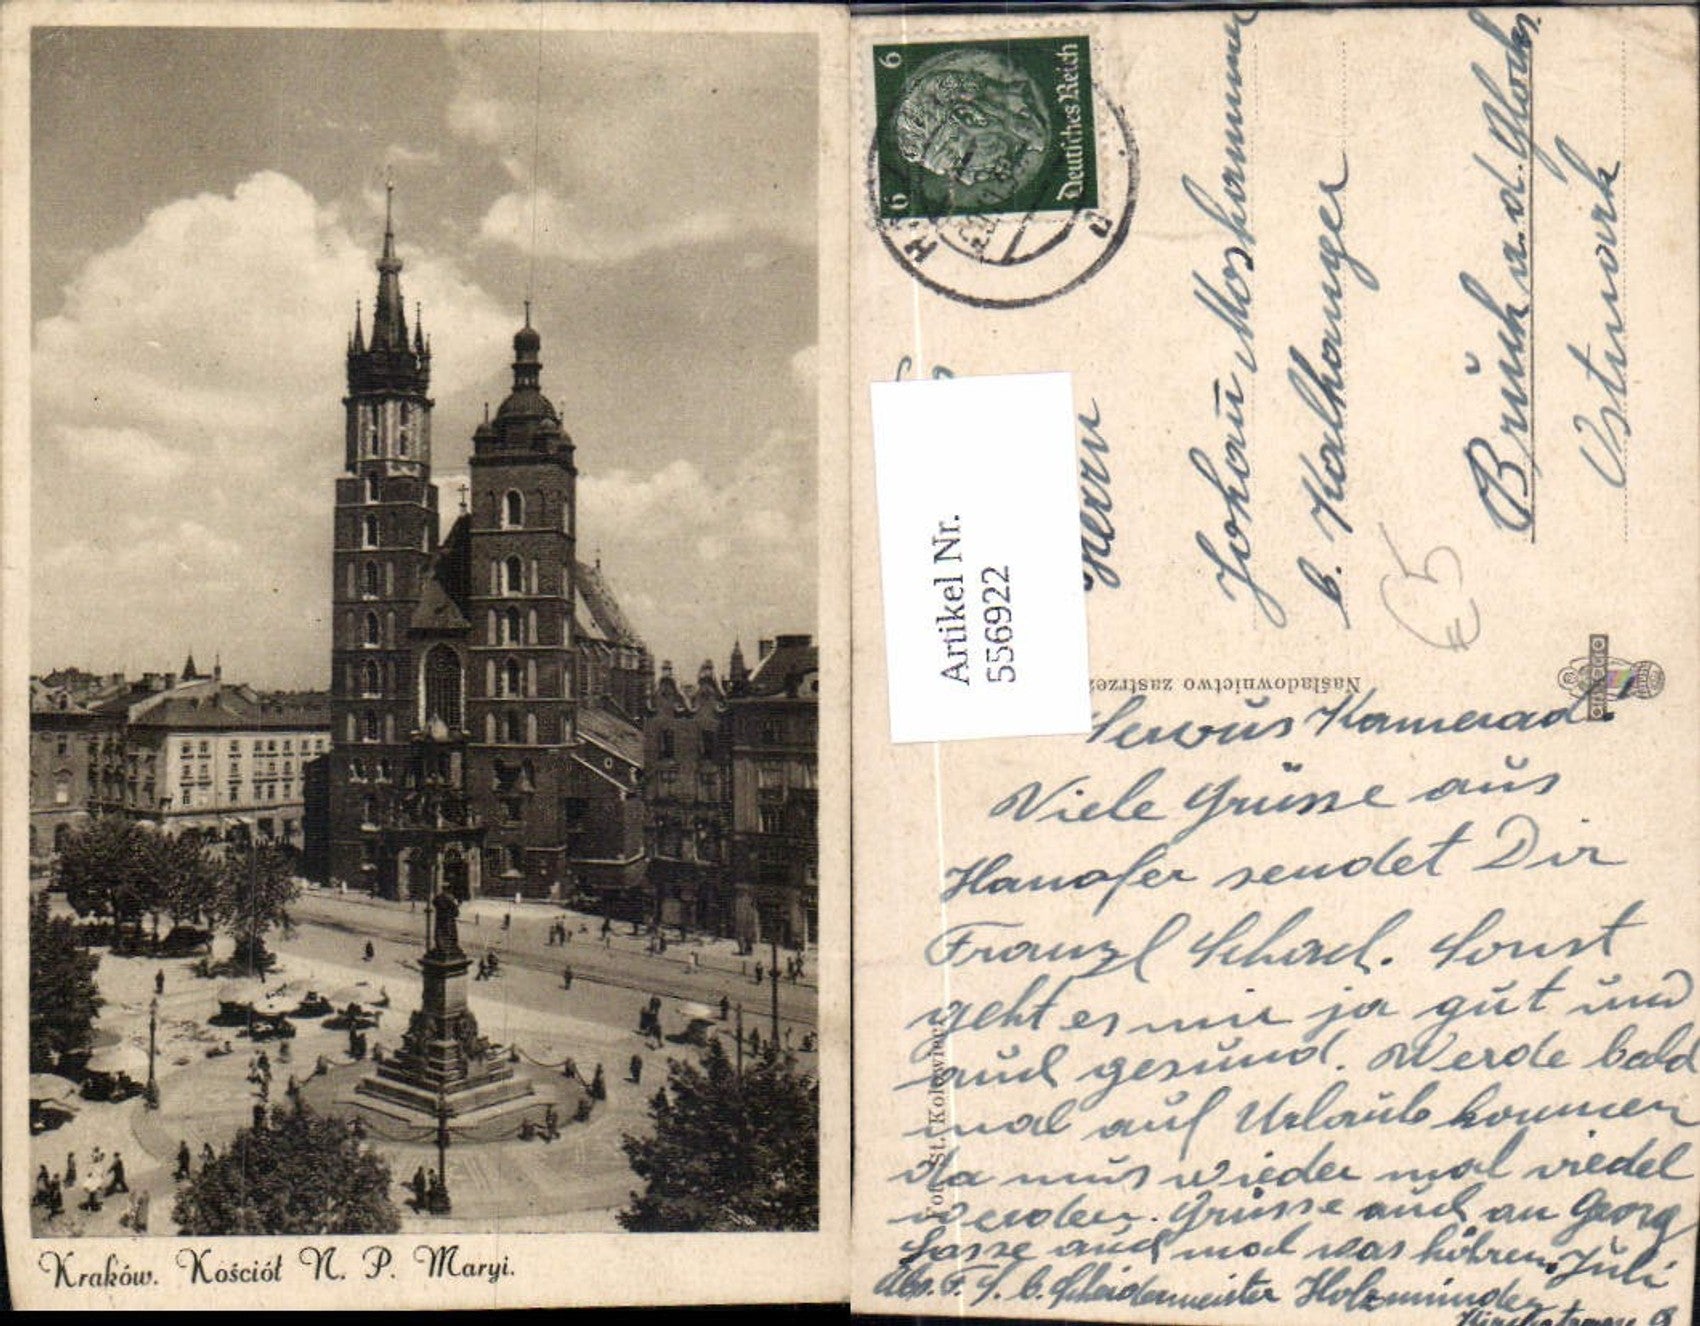 Kraków. Kościół N. P. Maryi.
6
6
Deutsches Reich
Artikel Nr.
556922
Herrn
Johann Moshammer
b. Kalhanger
Brück a. d. Glocks.
Ostmark
€ 5
Naśladownictwo zastrze
Fot. St. Kolowiec
Servus Kamerad!
Viele Grüsse aus
Hanofer sendet Dir
Franzl Schad. Sonst
geht es mir ja gut und
auch gesund. Werde bald
mal auf Urlaub kommen
da mus wieder mal
werden. Grüsse auch an Georg
Lasse auch mal was hören. Juli
Abs. F. S. b. Scheidemeister Holzminden